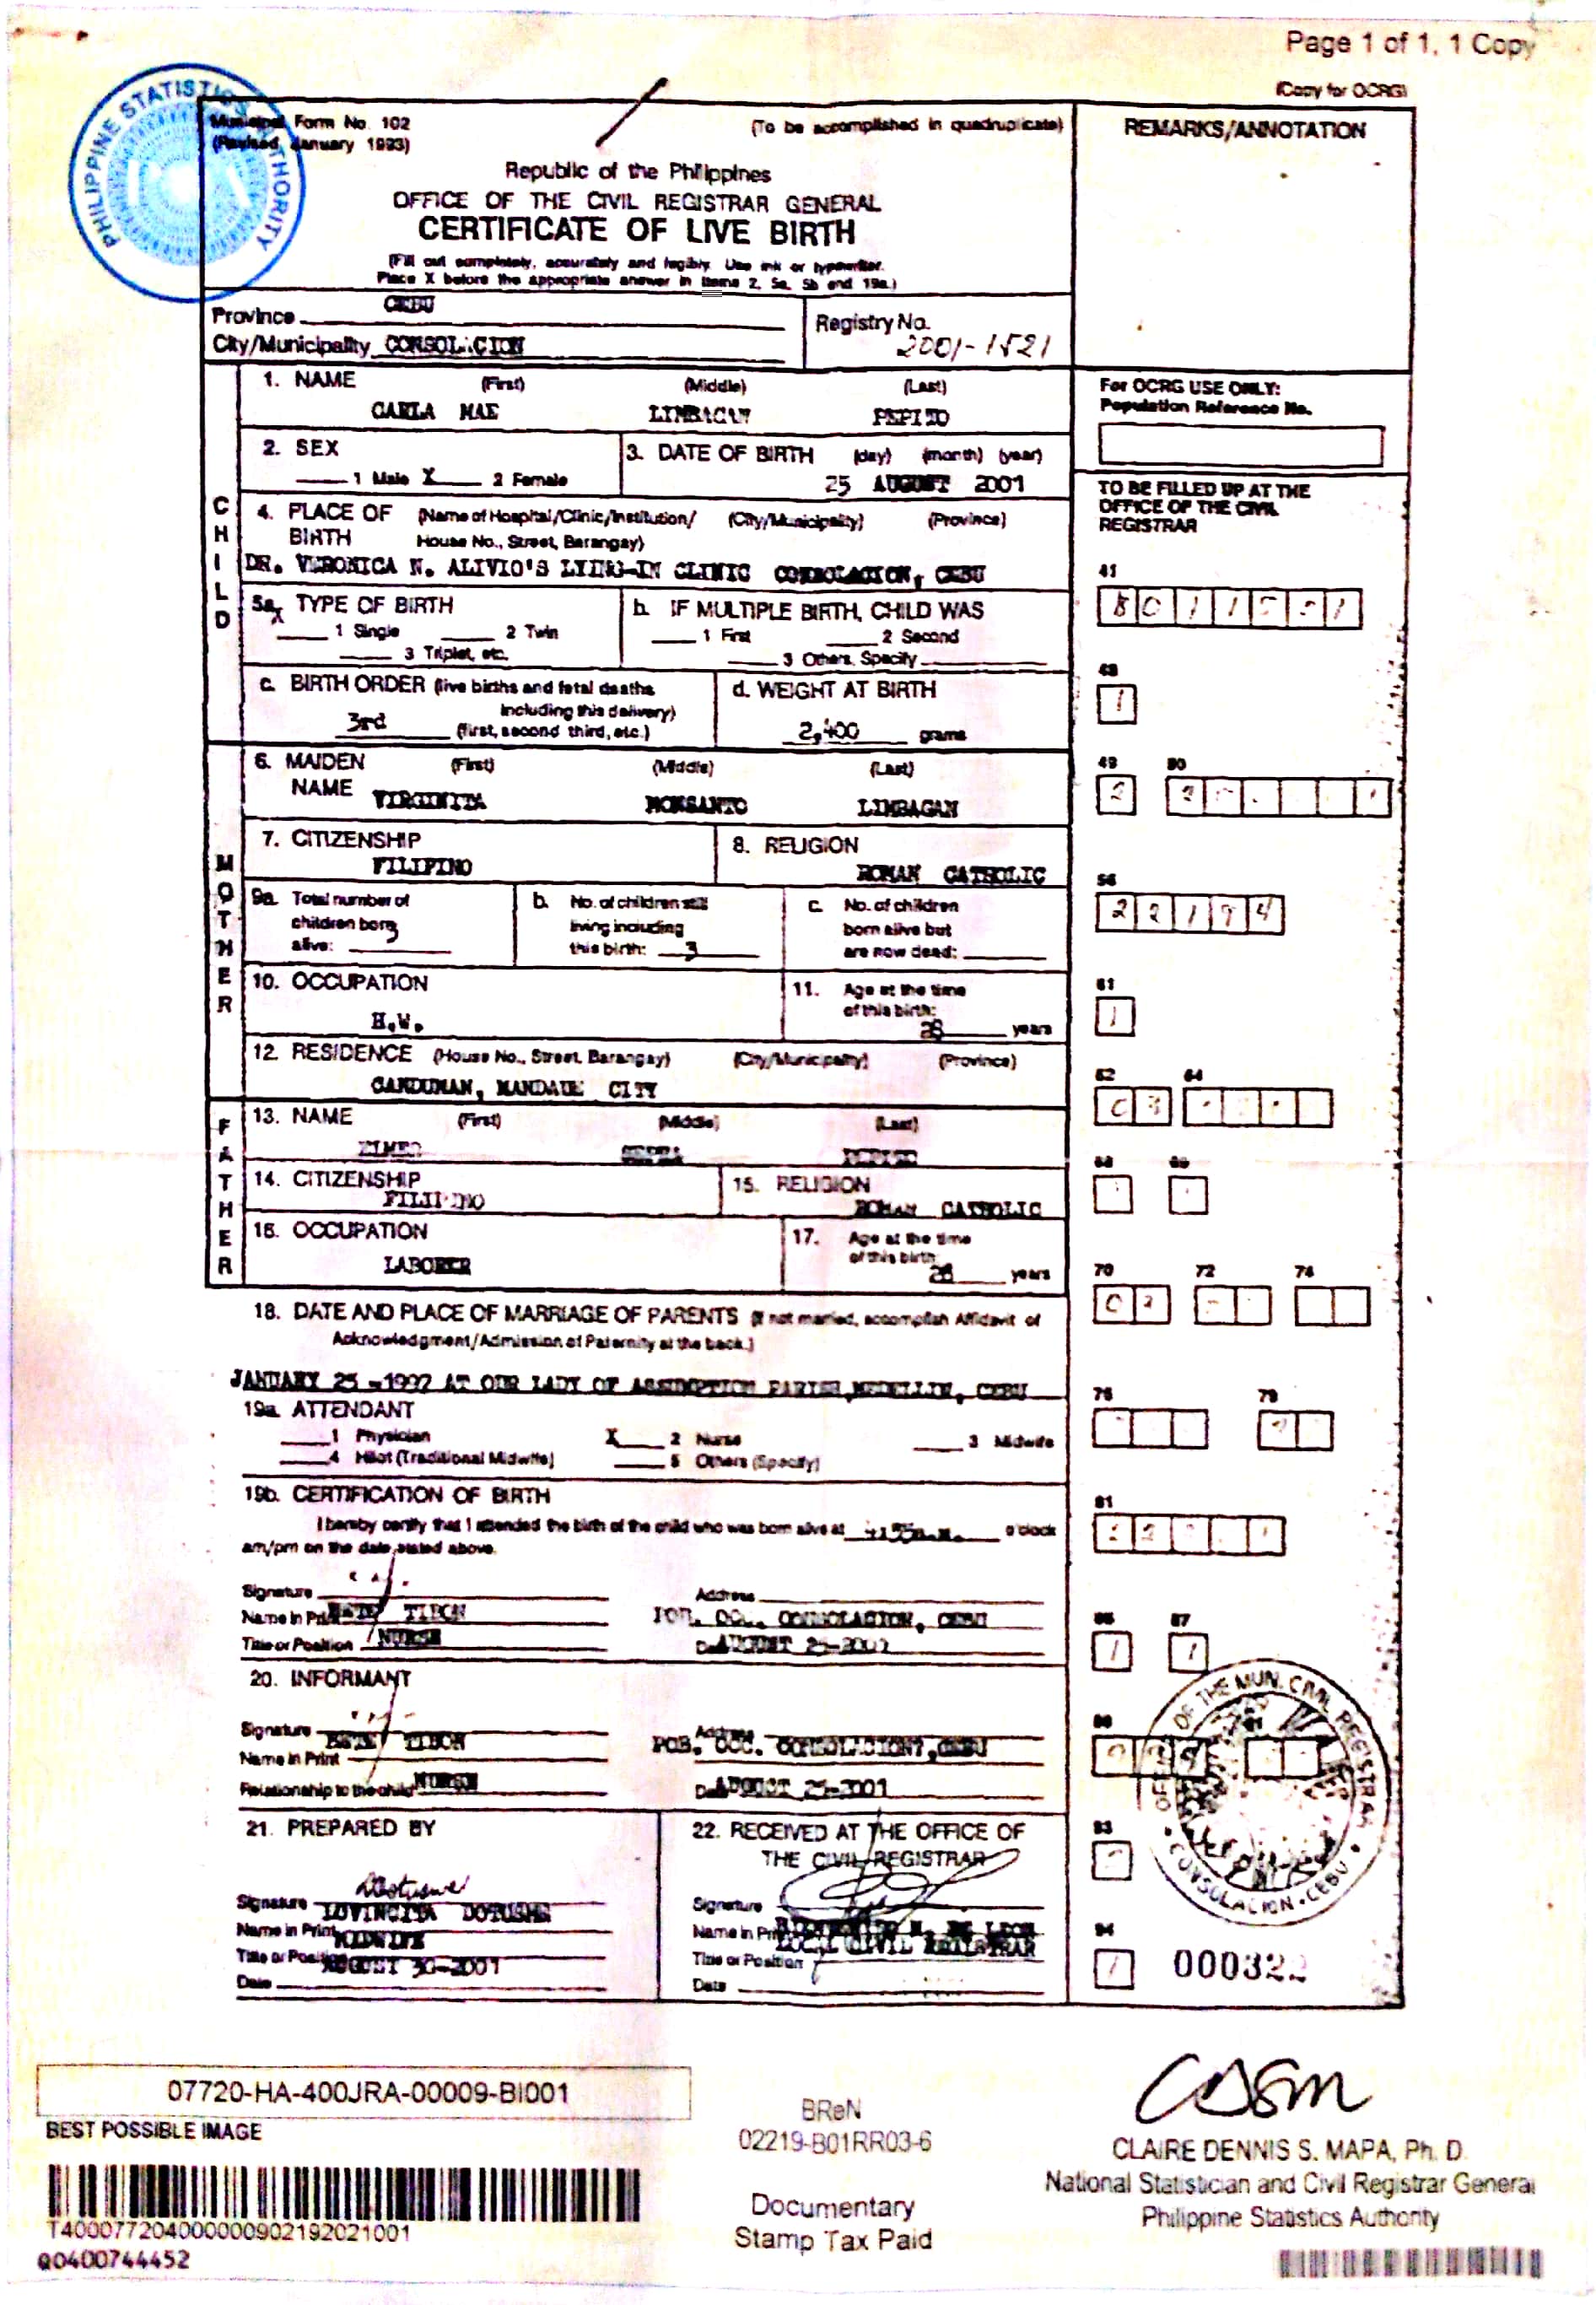 Page 1 of 1, 1 Copy
(Copy for OCRG)
PHILIPPINE STATISTICS AUTHORITY
Municipal Form No. 102
(Revised January 1993)
(To be accomplished in quadruplicate)
REMARKS/ANNOTATION
Republic of the Philippines
OFFICE OF THE CIVIL REGISTRAR GENERAL
CERTIFICATE OF LIVE BIRTH
(Fill out completely, accurately and legibly. Use ink or typewriter.
Place X before the appropriate answer in Items 2, 5a, 5b and 19a.)
Province CEBU
Registry No.
2001-1521
City/Municipality
1. NAME (First) (Middle) (Last)
CARLA MAE LIMBAGAN PEPITO
For OCRG USE ONLY:
Population Reference No.
2. SEX
1 Male X 2 Female
3. DATE OF BIRTH (day) (month) (year)
25 AUGUST 2001
TO BE FILLED UP AT THE
OFFICE OF THE CIVIL
REGISTRAR
CHILD
4. PLACE OF BIRTH (Name of Hospital/Clinic/Institution/ (City/Municipality) (Province)
House No., Street, Barangay)
DR. VERONICA N. ALIVIO'S LYING-IN CLINIC CONSOLACION, CEBU
41
5a. TYPE OF BIRTH
X 1 Single 2 Twin
3 Triplet, etc.
b. IF MULTIPLE BIRTH, CHILD WAS
1 First 2 Second
3 Others, Specify
48
1
c. BIRTH ORDER (live births and fetal deaths
including this delivery)
3rd (first, second third, etc.)
d. WEIGHT AT BIRTH
2,400 grams
49 50
2
MOTHER
6. MAIDEN NAME (First) (Middle) (Last)
VIRGINITA MONSANTO LIMBAGAN
7. CITIZENSHIP
FILIPINO
8. RELIGION
ROMAN CATHOLIC
56
9a. Total number of
children born
alive: 3
b. No. of children still
living including
this birth: 3
c. No. of children
born alive but
are now dead:
10. OCCUPATION
H.W.
11. Age at the time
of this birth:
years
61
1
12. RESIDENCE (House No., Street, Barangay) (City/Municipality) (Province)
CANDUMAN, MANDAUE CITY
62 64
FATHER
13. NAME (First) (Middle) (Last)
14. CITIZENSHIP
FILIPINO
15. RELIGION
ROMAN CATHOLIC
68 69
16. OCCUPATION
LABORER
17. Age at the time
of this birth:
years
70 72 74
18. DATE AND PLACE OF MARRIAGE OF PARENTS (If not married, accomplish Affidavit of
Acknowledgment/Admission of Paternity at the back.)
JANUARY 25 -1997 AT OUR LADY OF ASSUMPTION PARISH, MEDELLIN, CEBU
76 79
19a. ATTENDANT
1 Physician X 2 Nurse 3 Midwife
4 Hilot (Traditional Midwife) 5 Others (Specify)
19b. CERTIFICATION OF BIRTH
81
I hereby certify that I attended the birth of the child who was born alive at o'clock
am/pm on the date stated above.
Signature
Address
Name in Print TIBON
POB. OCC. CONSOLACION, CEBU
Title or Position NURSE
AUGUST 25-2001
86 87
1 1
20. INFORMANT
Signature
Address
Name in Print TIBON
POB. OCC. CEBU
Relationship to the child NURSE
AUGUST 25-2001
21. PREPARED BY
22. RECEIVED AT THE OFFICE OF
THE CIVIL REGISTRAR
93
Signature
Signature
LOVINGITA DOTUSME
Name in Print
DE LEON
MIDWIFE
LOCAL CIVIL REGISTRAR
Title or Position
AUGUST 30-2001
Title or Position
Date
Date
94
000322
OFFICE OF THE MUN. CIVIL REGISTRAR
CONSOLACION • CEBU
07720-HA-400JRA-00009-BI001
BEST POSSIBLE IMAGE
T400077204000000902192021001
Q0400744452
BReN
02219-B01RR03-6
Documentary
Stamp Tax Paid
CLAIRE DENNIS S. MAPA, Ph. D.
National Statistician and Civil Registrar General
Philippine Statistics Authority